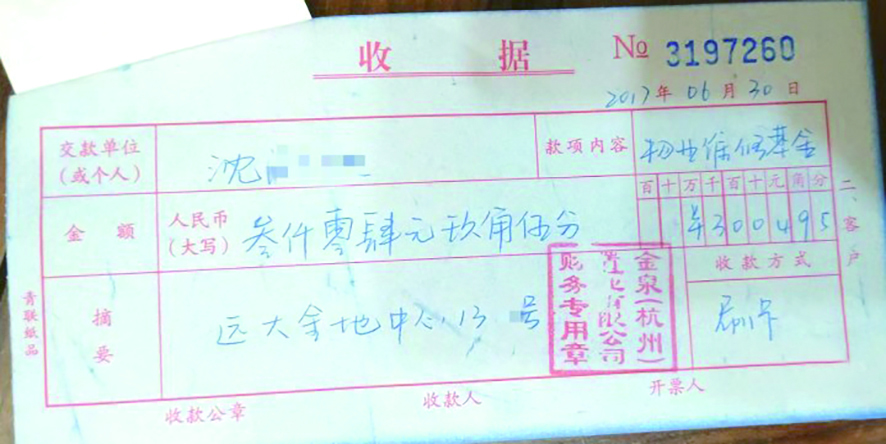 收据 № 3197260
2017年06月30日
交款单位
(或个人)
沈
款项内容
物业维修基金
百十万千百十元角分
金额
人民币
(大写)
叁仟零肆元玖角伍分
¥300495
二、客户
收款方式
刷卡
摘要
远大金地中心13 号
金泉(杭州)
有限公司
财务专用章
青联纸品
收款公章
收款人
开票人